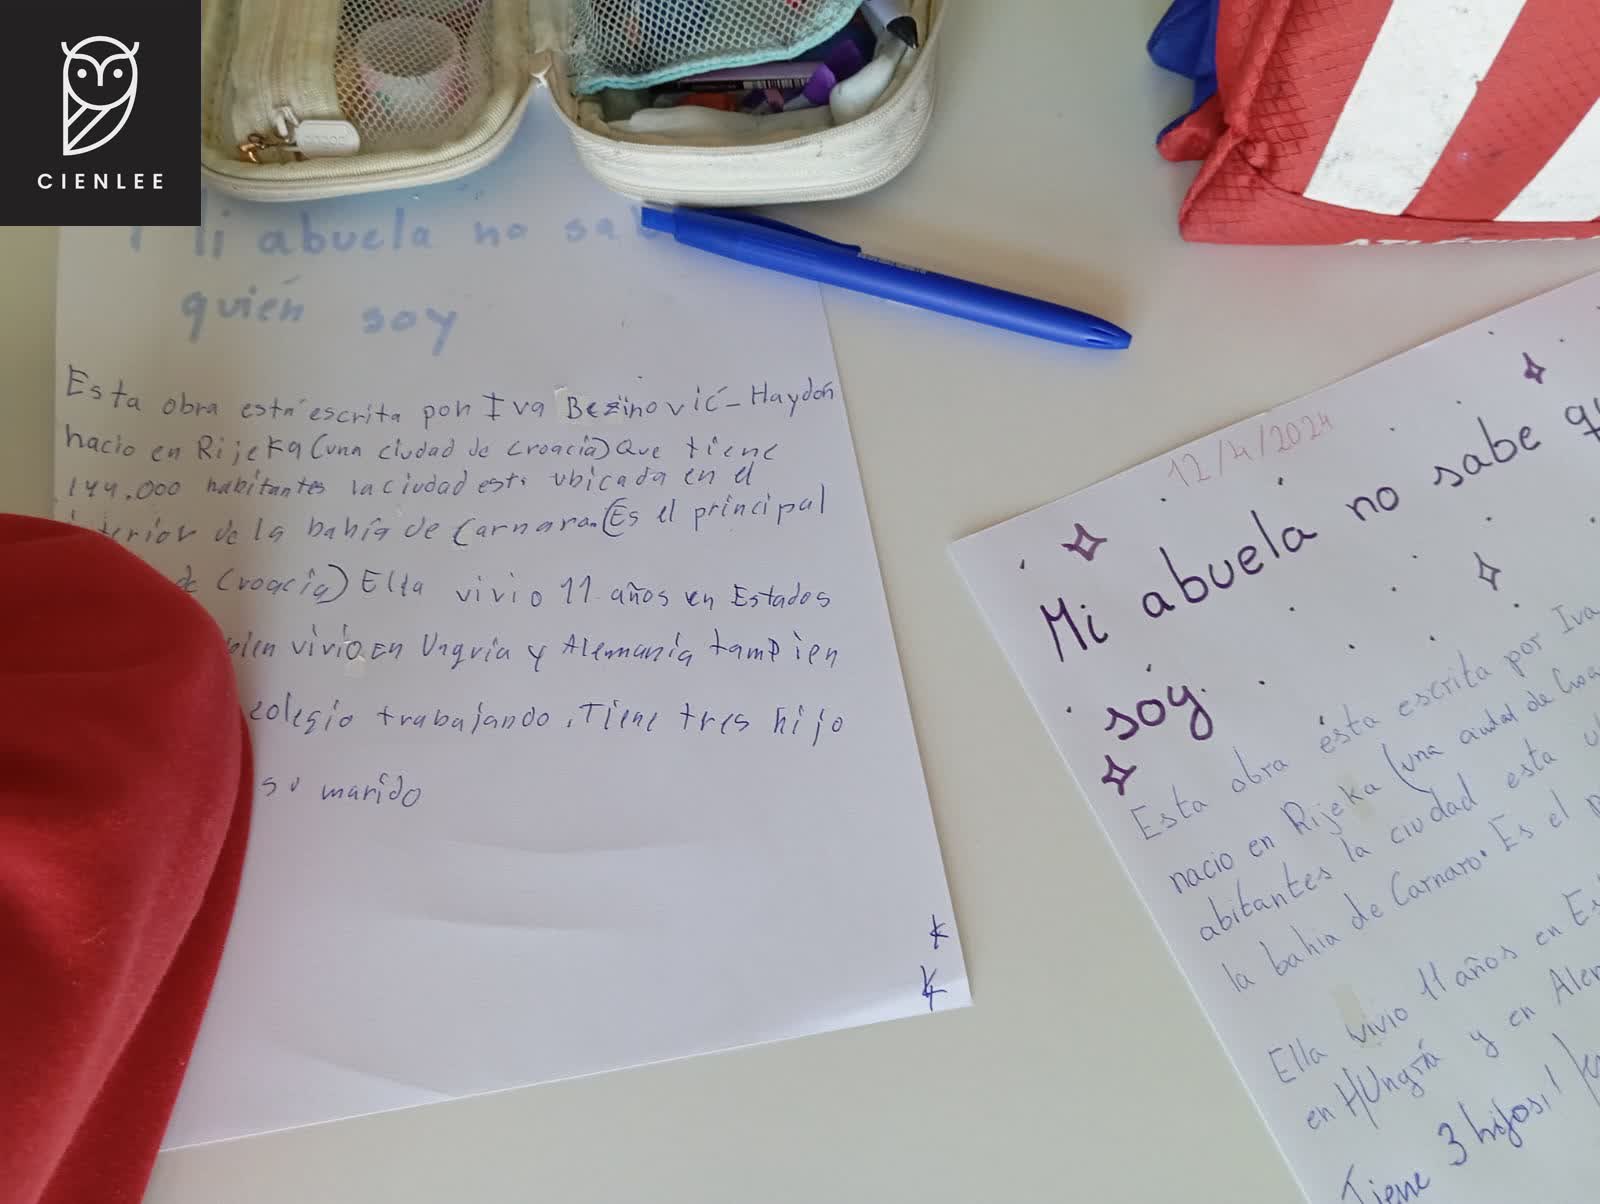 CIENLEE
Mi abuela no sa
quién soy
Esta obra está escrita por Iva Bezinović-Haydon
nacio en Rijeka (una ciudad de Croacia) Que tiene
144.000 habitantes la ciudad esta ubicada en el
interior de la bahía de Carnaro. (Es el principal
de Croacia) Ella vivio 11 años en Estados
bien vivio en Ungria y Alemania tampien
colegio trabajando. Tiene tres hijo
su marido
12/4/2024
Mi abuela no sabe qu
soy.
Esta obra ésta escrita por Iva
nacio en Rijeka (una ciudad de Croa
abitantes la ciudad esta u
la bahia de Carnaro. Es el p
Ella vivio 11 años en Es
en HUngría y en Alem
Tiene 3 hijos!